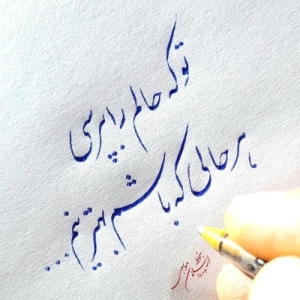 تو که حالم را بپرسی
هر حالی که باشم بهترینم...